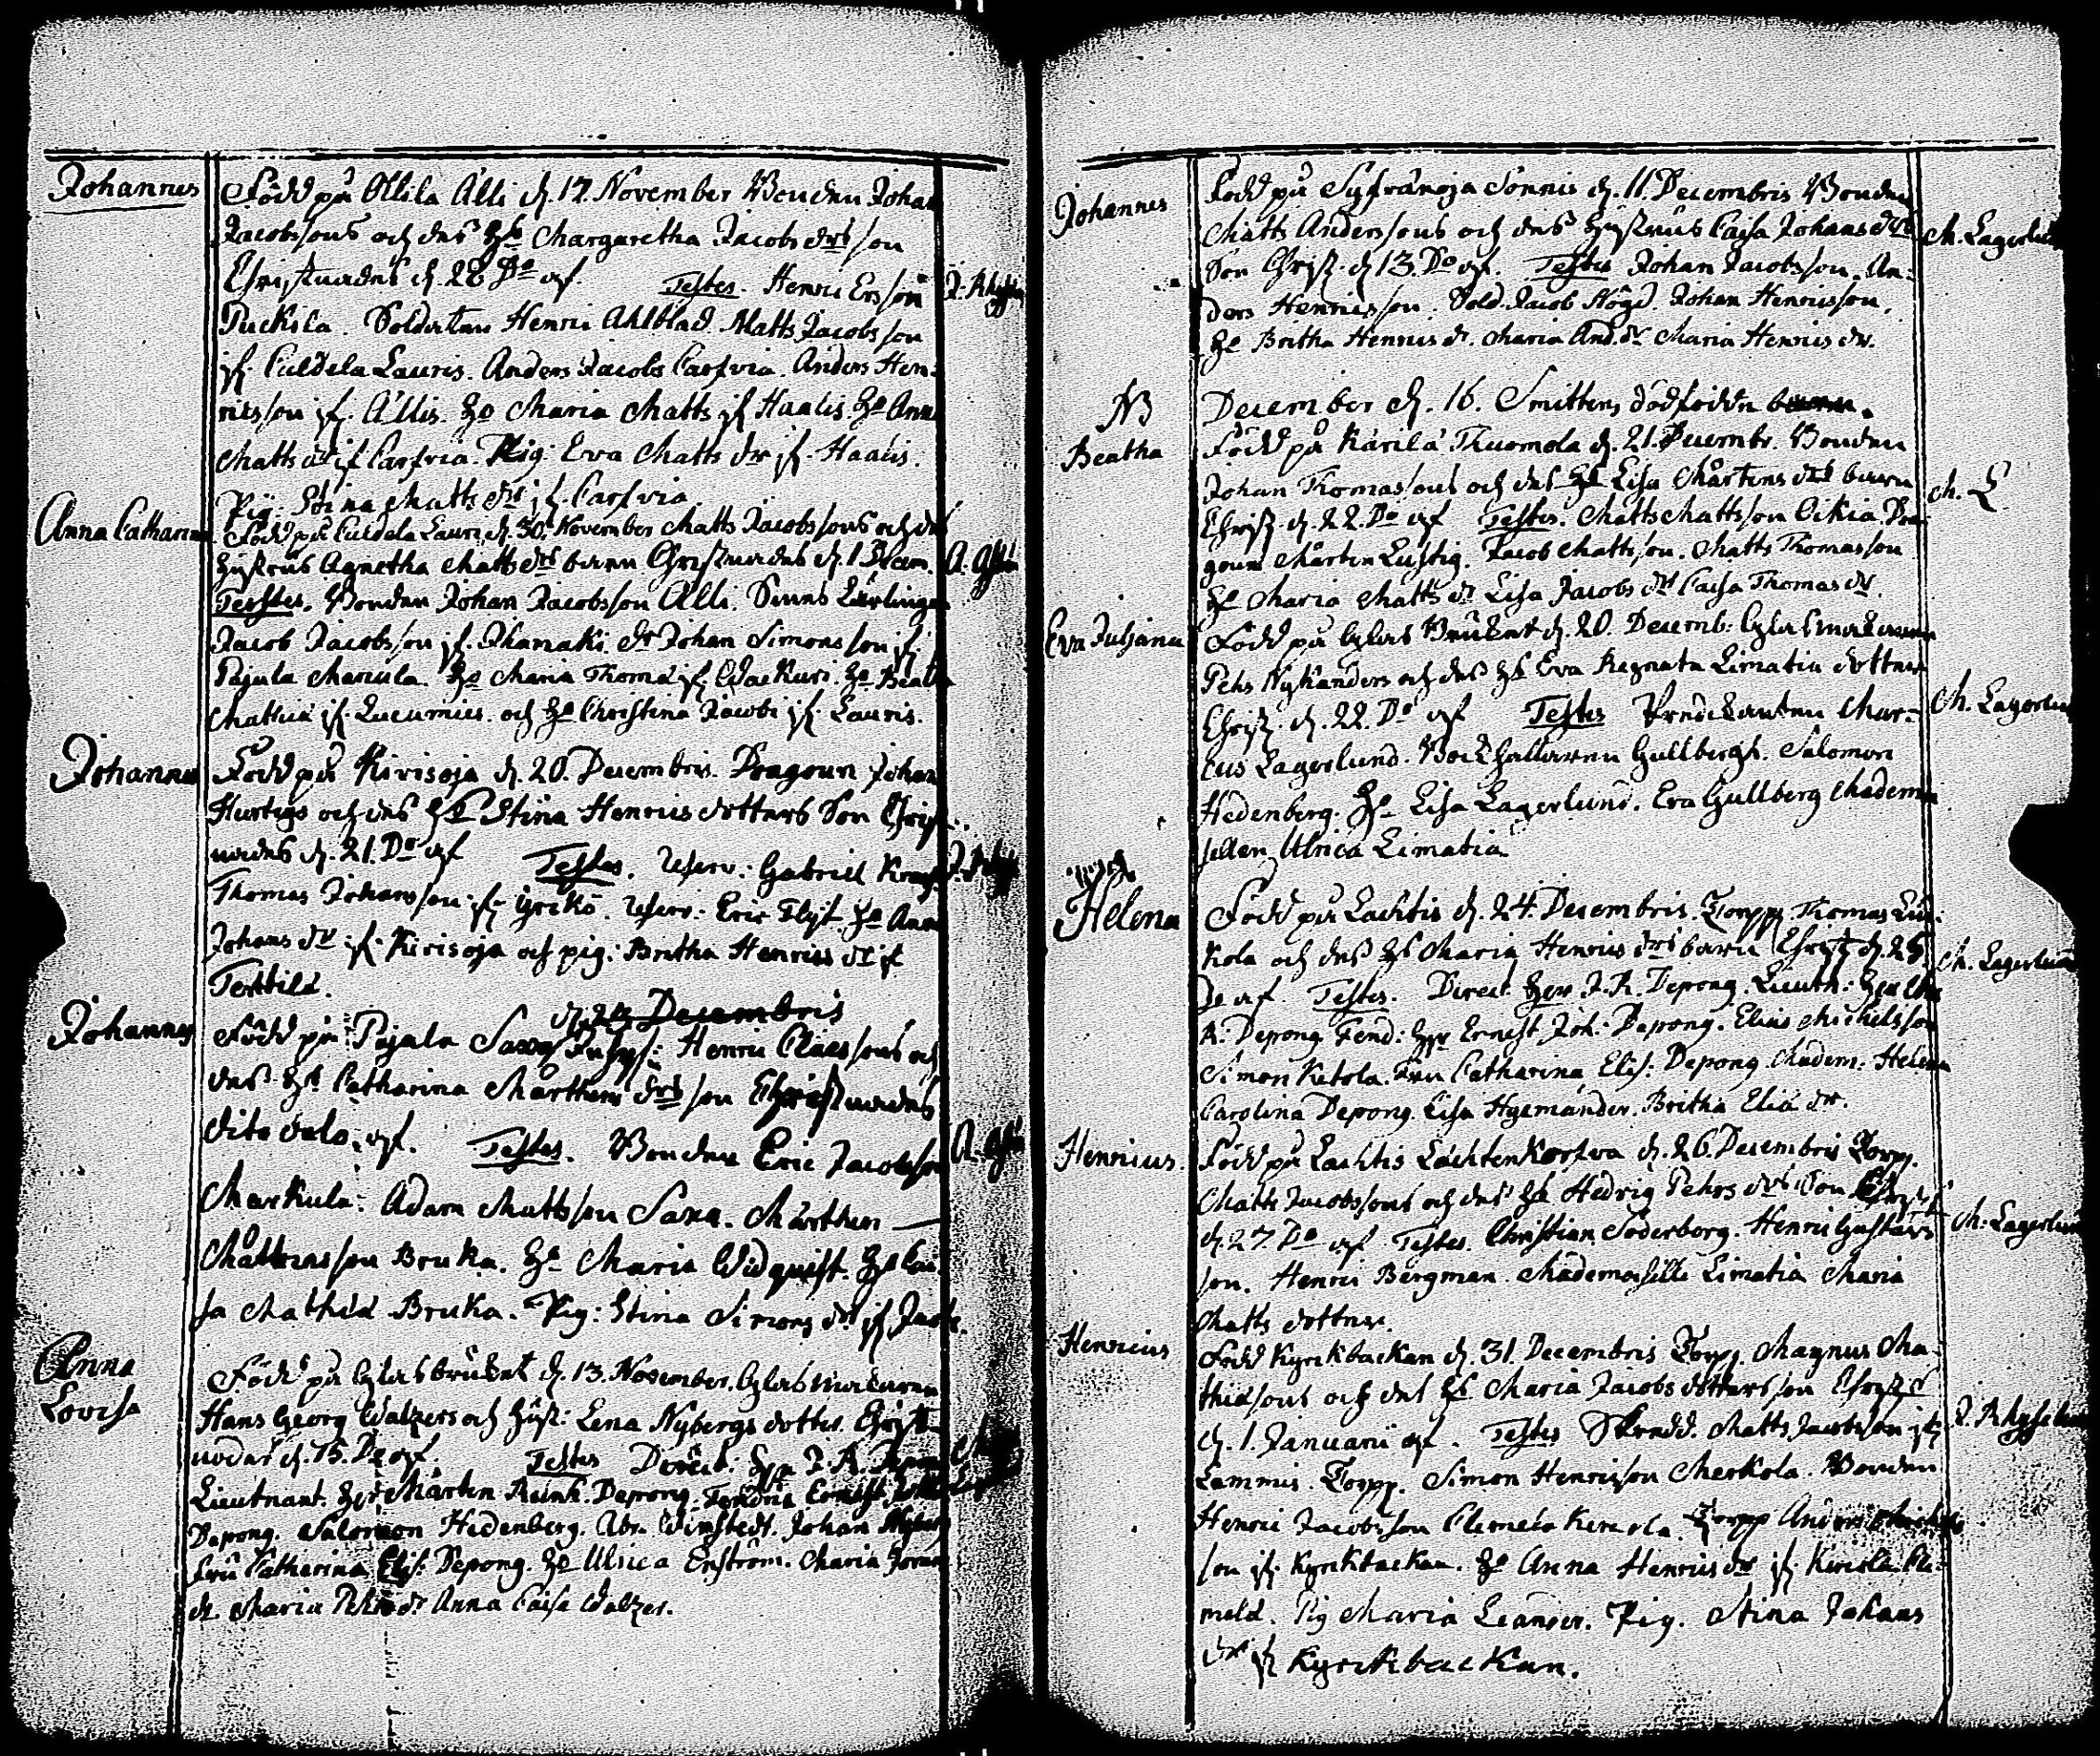 Johannes
Född på Ollila Älli d. 17. November Bonden Johan
Jacobssons och des H:o Margaretha Jacobs drs son
Christnades d. 28 D:o af. Testes. Henric Ersson
Puckila. Soldaten Henric Ahlblad. Matts Jacobsson
if. Culdela Lauris. Anders Jacobs Carfvia. Anders Hen-
ricsson if. Ällis. H:o Maria Matts if Haalis. H:o Anna
Matts dr if Carfvia. Pig: Erva Matts dr if. Haalis.
Pig: Stina Matts dr if. Carfvia.
Anna Catharina
Född på Culdela Lauri d. 30. November Matts Jacobssons och des
hustrus Agnetha Matts drs barn Christnades d. 1 Decem.
Testes. Bonden Johan Jacobsson Älli. Smeds Lärlingen
Jacob Jacobsson if. dr Johan Simonsson if
Pajula Marcula. H:o Maria Thomæ if H:o Beata
Matthiæ if. och H:o Christina Jacobi if. Lauris.
Johannes
Född på Kirisoja d. 20. Decembris. Dragoun Johan
Hurtigs och des H:s Stina Henrics dotters Son Christ-
nades d. 21. D:o af Testes. Gabriel
Thomas Johansson if Yrckö. Eric Flyt. H:o Anna
Johans dr if. Kirisoja och pig: Britha Henrics dr if
Terttilä.
d. 23 Decembris
Johannes
Född på Pajula Saxa Henric Claessons och
des H:s Catharina Mårthens drs son Christnades
dito dato. af. Testes. Bonden Eric Jacobsson
Markula. Adam Mattsson Saxa. Mårthen
Måttensson Bruka. H:o Maria Widquist. H:o Cai-
sa Mathiæ Bruka. Pig: Stina Simons dr if
Anna
Lovisa
Född på Glasbruket d. 13. November. Glasmakaren
Hans Georg Walzers och Hust: Lena Nybergs dotter. Christ-
nades d. 15. D:o af. Testes Direct: Herr J. R. Depong
Lieutnant. Herr Mårten Reinh. Depong. Ernest
Depong. Salomon Hedenberg. Abr. Winstedt. Johan Nyberg
Fru Catharina Elis: Depong. H:o Ulrica Enström. Maria
dr. Maria Pehrs dr Anna Caisa Walzer.
Johannes
Född på Syfränoja Sonnis d. 11. Decembris Bonden
Matts Anderssons och des Hustrus Caisa Johans drs
Son Christ. d. 13. D:o af. Testes Johan Jacobsson. An-
ders Henricsson. Sold. Jacob Högd. Johan Henricsson.
H:o Britha Henrics dr. Maria And. dr Maria Henrics dr.
M. Lagerlund
NB
December d. 16. Smittens dödfödde barn.
Beatha
Född på Karila Thuomola d. 21. Decembr. Bonden
Johan Thomassons och des H:s Lisa Mårtens drs barn
Christ. d. 22. D:o af Testes. Matts Mattsson Oikia Dra-
goun Mårten Lustig. Jacob Mattsson. Matts Thomasson
H:o Maria Matts dr Lisa Jacobs dr Caisa Thomas dr.
M. L
Eva Juliana
Född på Glas Bruket d. 20. Decemb: Glasmakaren
Pehr Nykanders och des H:s Eva Regnata Limatia dotter
Christ. d. 22. D:o af Testes Predikanten Mar-
cus Lagerlund. Bockhallaren Gullbergh. Salomon
Hedenberg. H:o Lisa Lagerlund. Eva Gullberg Madema
sellen Ulrica Limatia
M. Lagerlund
Helena
Född på Lachtis d. 24. Decembris. Torpp. Thomas
kola och des H:s Maria Henrics drs barn Christ. d. 25
D:o af. Testes. Direct. Herr J. R. Depong. Lieutn: Herr
R: Depong Fend: Herr Ernest Joh: Depong. Elias Michelsson
Simon Ketola. Fru Catharina Elis: Depong. Madem: Helena
Carolina Depong. Lisa Hyemander. Britha Eliæ dr.
M. Lagerlund
Henricus.
Född på Lachtis Lachtenkorfva d. 26. Decembris Torpp.
Matts Jacobssons och des H:s Hedvig Pehrs drs son Christ
d. 27. D:o af Testes. Christian Söderborg. Henric Gustavs-
son. Henric Bergman. Mademoiselle Limatia Maria
Matts dotter.
M. Lagerlund
Henricus
Född Kyrckbackan d. 31. Decembris Torpp. Magnus Ma-
thiæsons och des H:s Maria Jacobs dotters son Christ.
d. 1. Januarii af. Testes Skredd. Matts Jacobsson if
Lammis. Torpp. Simon Henricsson Merkola. Bonden
Henric Jacobsson Clemelä Kerrola. Torpp Anders Michels-
son if. Kyrckbackan. H:o Anna Henrics dr if. Cle-
melä. Pig Maria Leander. Pig. Stina Johans
dr if Kyrckbackan.